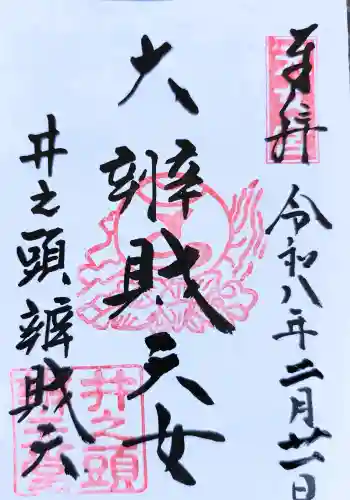 奉拝
令和八年二月廿一日
大辨財天女
井之頭辨財天
井之頭